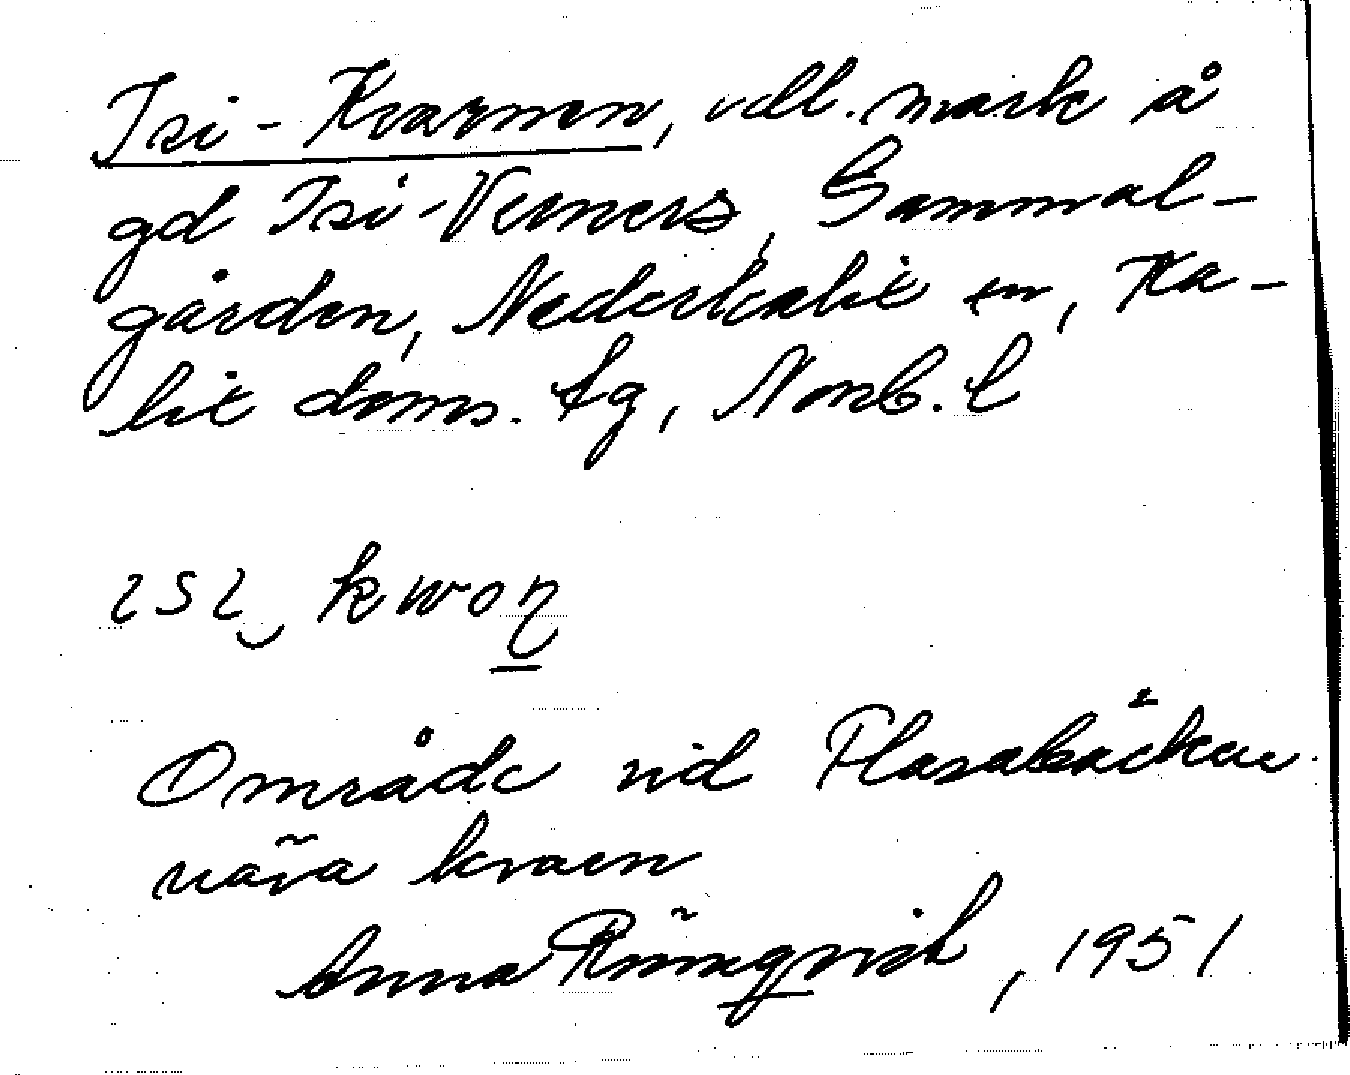 Isi-Kvarnen, odl. mark å
gd Isi-Verners, Gammal-
gården, Nederkalix sn, Ka-
lix doms. tg, Norrb. l
ɩsɩ‿ kwoɳ
Område vid Flasabäcken
nära kvarn
Anna Rönnqvist, 1951